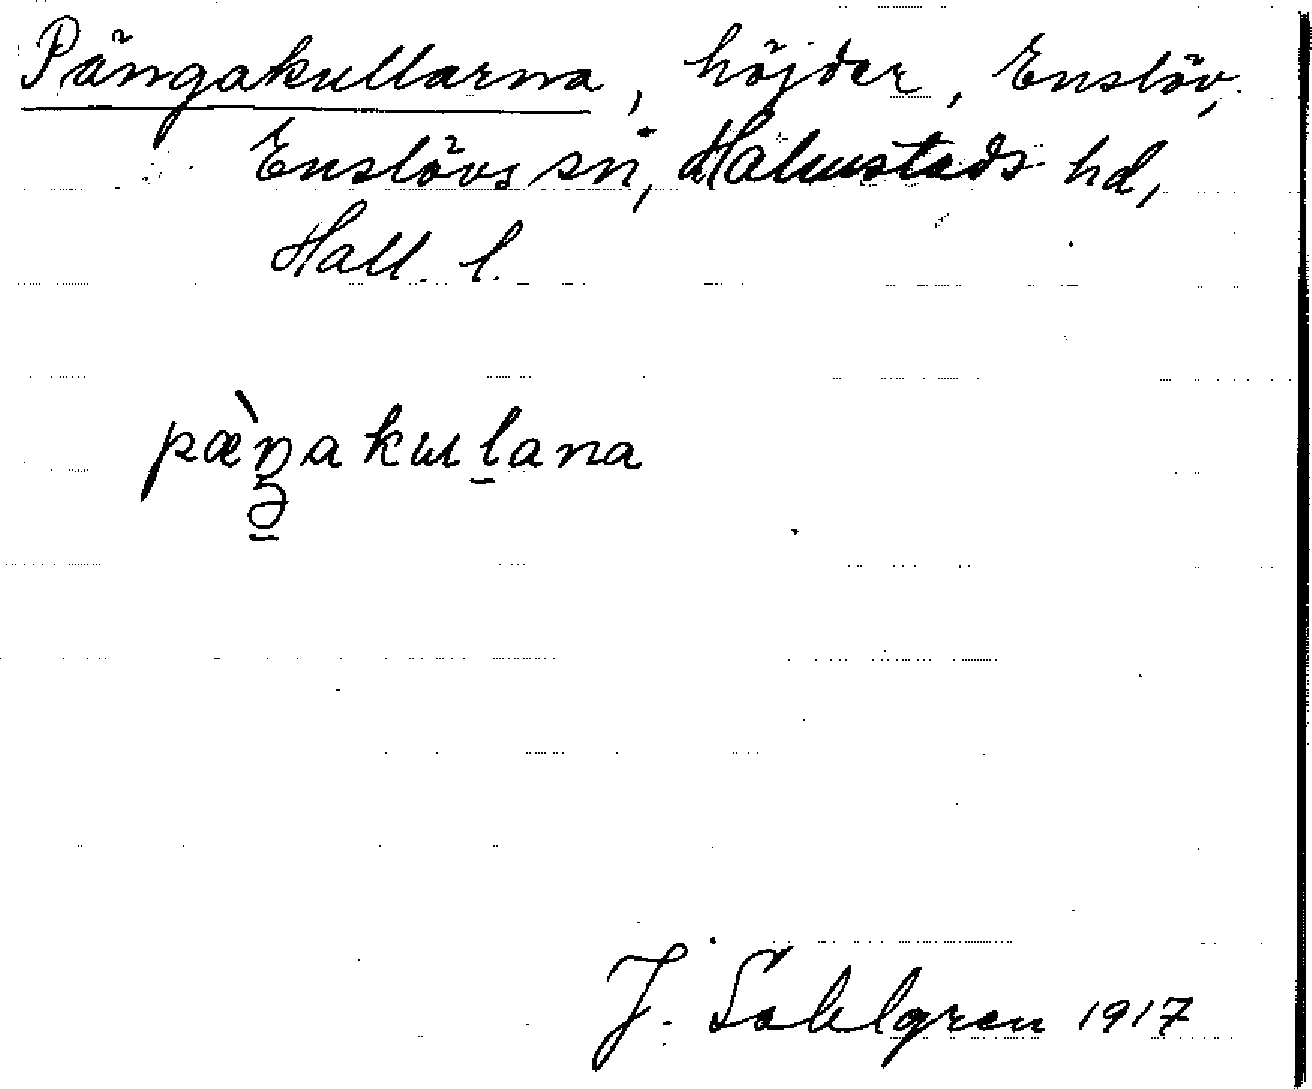 Pängakullarna, höjder, Enslöv,
Enslövs sn, Halmstads hd,
Hall. l.
pæ̀ŋakuḻana
J. Sahlgren 1917